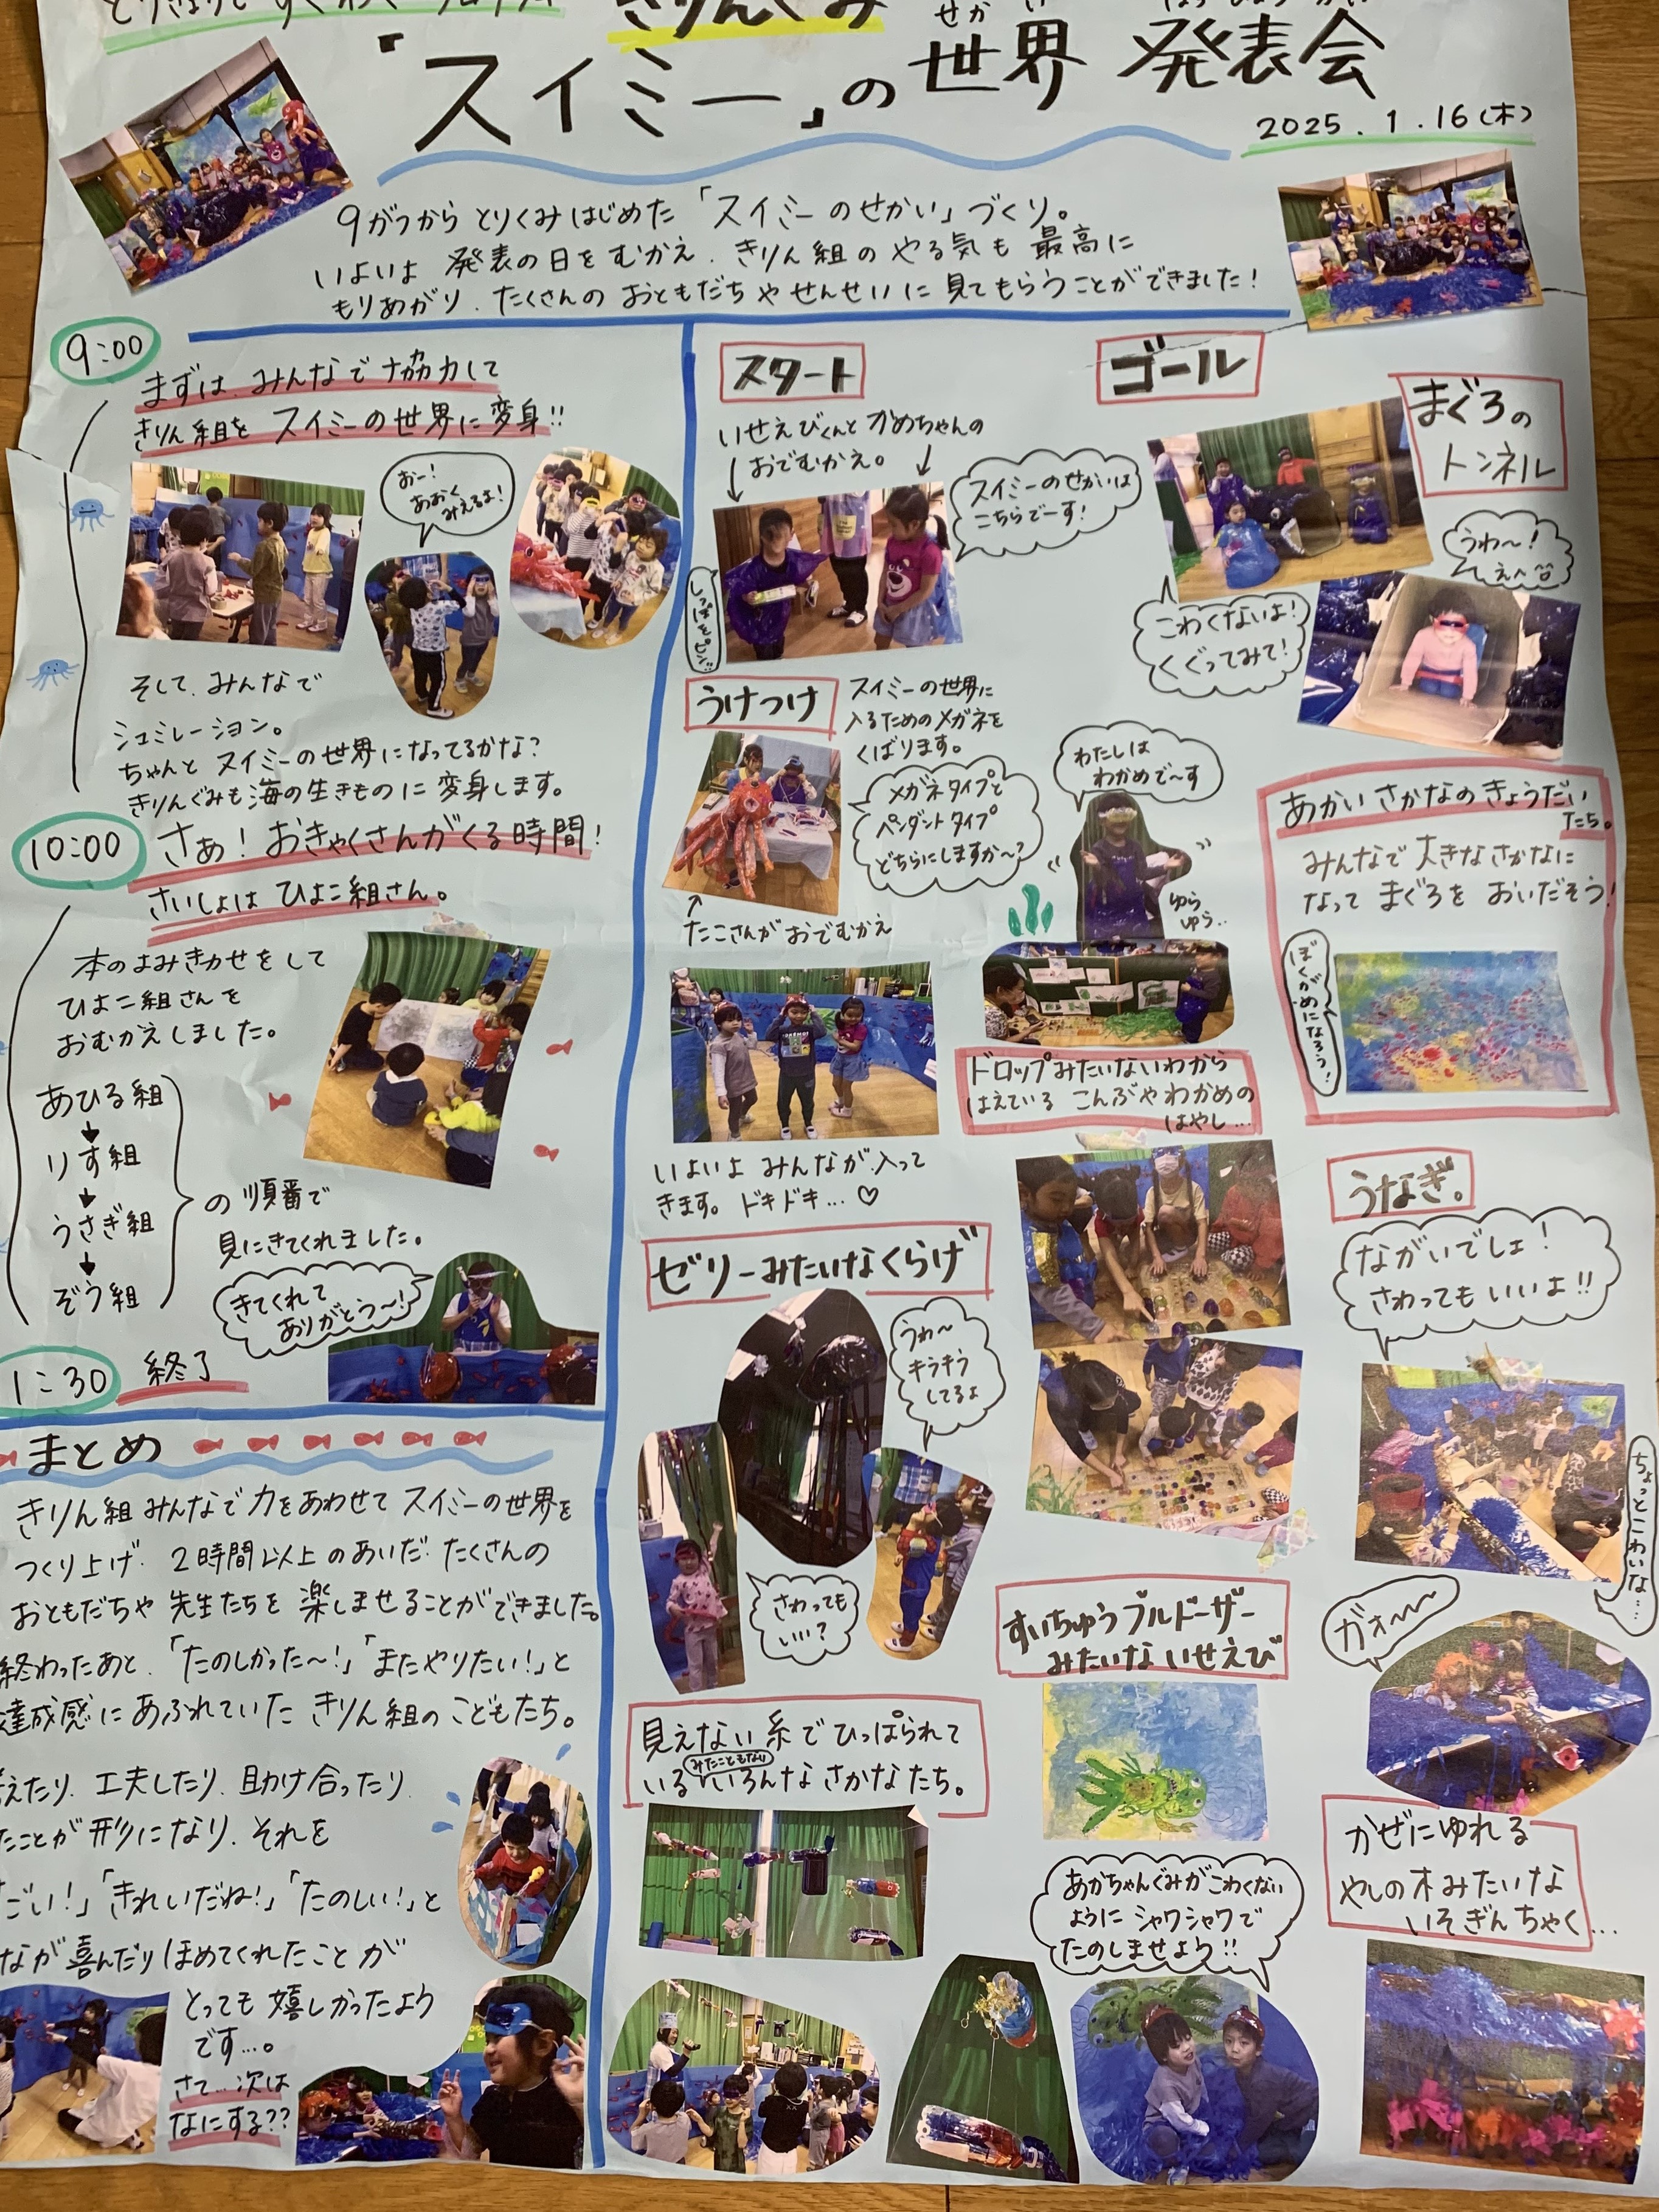 きりんぐみ
「スイミー」の世界 発表会
せかい
2025.1.16(木)
9がつから とりくみはじめた「スイミーのせかい」づくり。
いよいよ 発表の日をむかえ、きりん組のやる気も最高に
もりあがり、たくさんの おともだちやせんせいに見てもらうことができました!
9:00
まずは、みんなで協力して
きりん組を スイミーの世界に変身!!
おー!
あおく
みえるよ!
そして、みんなで
シュミレーション。
ちゃんと スイミーの世界になってるかな?
きりんぐみも海の生きものに変身します。
10:00
さぁ! おきゃくさんがくる時間!
さいしょは ひよこ組さん。
本のよみきかせをして
ひよこ組さんを
おむかえしました。
あひる組
りす組
うさぎ組
ぞう組
の順番で
見にきてくれました。
きてくれて
ありがとう〜!
1:30 終了
まとめ
きりん組みんなで力をあわせて スイミーの世界を
つくり上げ、2時間以上のあいだ、たくさんの
おともだちや 先生たちを 楽しませることができました。
終わったあと、「たのしかった〜!」「またやりたい!」と
達成感にあふれていた きりん組のこどもたち。
えたり、工夫したり、助け合ったり、
たことが形になり、それを
ごい!」「きれいだね!」「たのしい!」と
なが喜んだりほめてくれたことが
とっても嬉しかったよう
です…。
さて…次は
なにする??
スタート
いせえびくんと かめちゃんの
おでむかえ。
スイミーのせかいは
こちらでーす!
しっぽをピン!!
うけつけ
スイミーの世界に
入るためのメガネを
くばります。
メガネタイプと
ペンダントタイプ
どちらにしますか〜?
たこさんがおでむかえ
いよいよ みんなが入って
きます。ドキドキ…♡
ゼリーみたいなくらげ
うわ〜
キラキラ
してるよ
さわっても
いい?
見えない糸でひっぱられて
みたこともない
いる いろんな さかなたち。
わたしは
わかめで〜す
ゆら
ゆら…
ドロップみたいないわから
はえている こんぶやわかめの
はやし…
すいちゅうブルドーザー
みたいな いせえび
あかちゃんぐみが こわくない
ように シャワシャワで
たのしませよう!!
ゴール
まぐろの
トンネル
うわ〜!
こわくないよ!
くぐってみて!
あかいさかなのきょうだい
たち。
みんなで 大きなさかなに
なって まぐろを おいだそう!
ぼくがめになろう!
うなぎ。
ながいでしょ!
さわってもいいよ!!
ちょっとこわいな…
ガォ〜〜
かぜにゆれる
やしの木みたいな
いそぎんちゃく…